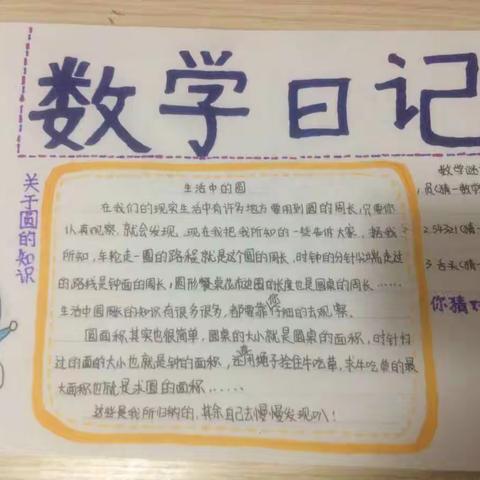 数学日记
关于圆的知识
生活中的圆
在我们的现实生活中有许多地方要用到圆的周长,只要你
认真观察,就会发现,现在我把我所知的一些告诉大家,据我
所知,车轮走一圈的路程就是这个圆的周长,时钟的分针尖端走过
的路线是钟面的周长,圆形餐桌花布边围的长度也是圆桌的周长……
生活中圆的知识有很多很多,都需靠你仔细的去观察。
圆面积其实也很简单,圆桌的大小就是圆桌的面积,时针扫
过的面的大小也就是钟的面积,还有用绳子拴住牛吃草,求牛吃草的最
大面积也就是求圆的面积……
这些是我所归纳的,其余自己去慢慢发现叭!
数学谜
2.54321(猜
3 舌头(猜
你猜